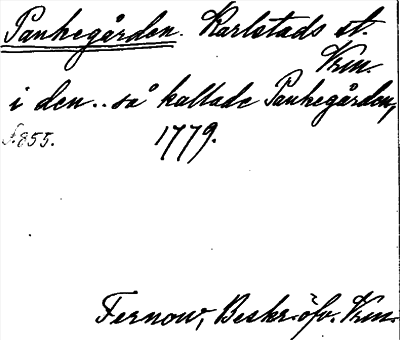 Panhegården. Karlstads st.
Vrm.
i den.. så kallade Panhegården,
s. 855. 1779.
Fernow, Beskr. öfv. Vrm.